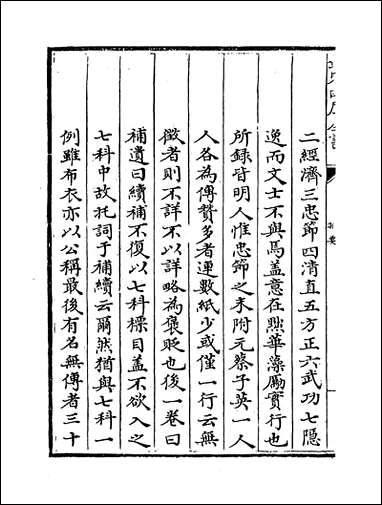 二經濟三忠節四清直五方正六武功七隱
逸而文士不與焉盖意在黜華藻勵實行也
所録皆明人惟忠節之末附元蔡子英一人
人各為傳贊多者連數紙少或僅一行云無
徵者則不詳不以詳略為褒貶也後一卷曰
補遺曰續補不復以七科標目盖不欲入之
七科中故托詞于補續云爾然猶與七科一
例雖布衣亦以公稱最後有名無傳者三十